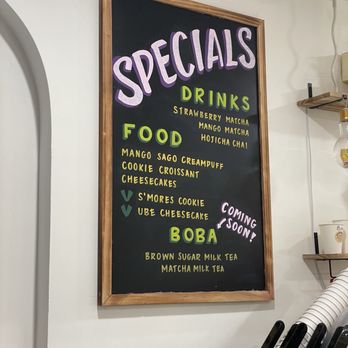 SPECIALS
DRINKS
STRAWBERRY MATCHA
MANGO MATCHA
HOJICHA CHAI
FOOD
MANGO SAGO CREAMPUFF
COOKIE CROISSANT
CHEESECAKES
V S'MORES COOKIE
V UBE CHEESECAKE
COMING
SOON!
BOBA
BROWN SUGAR MILK TEA
MATCHA MILK TEA